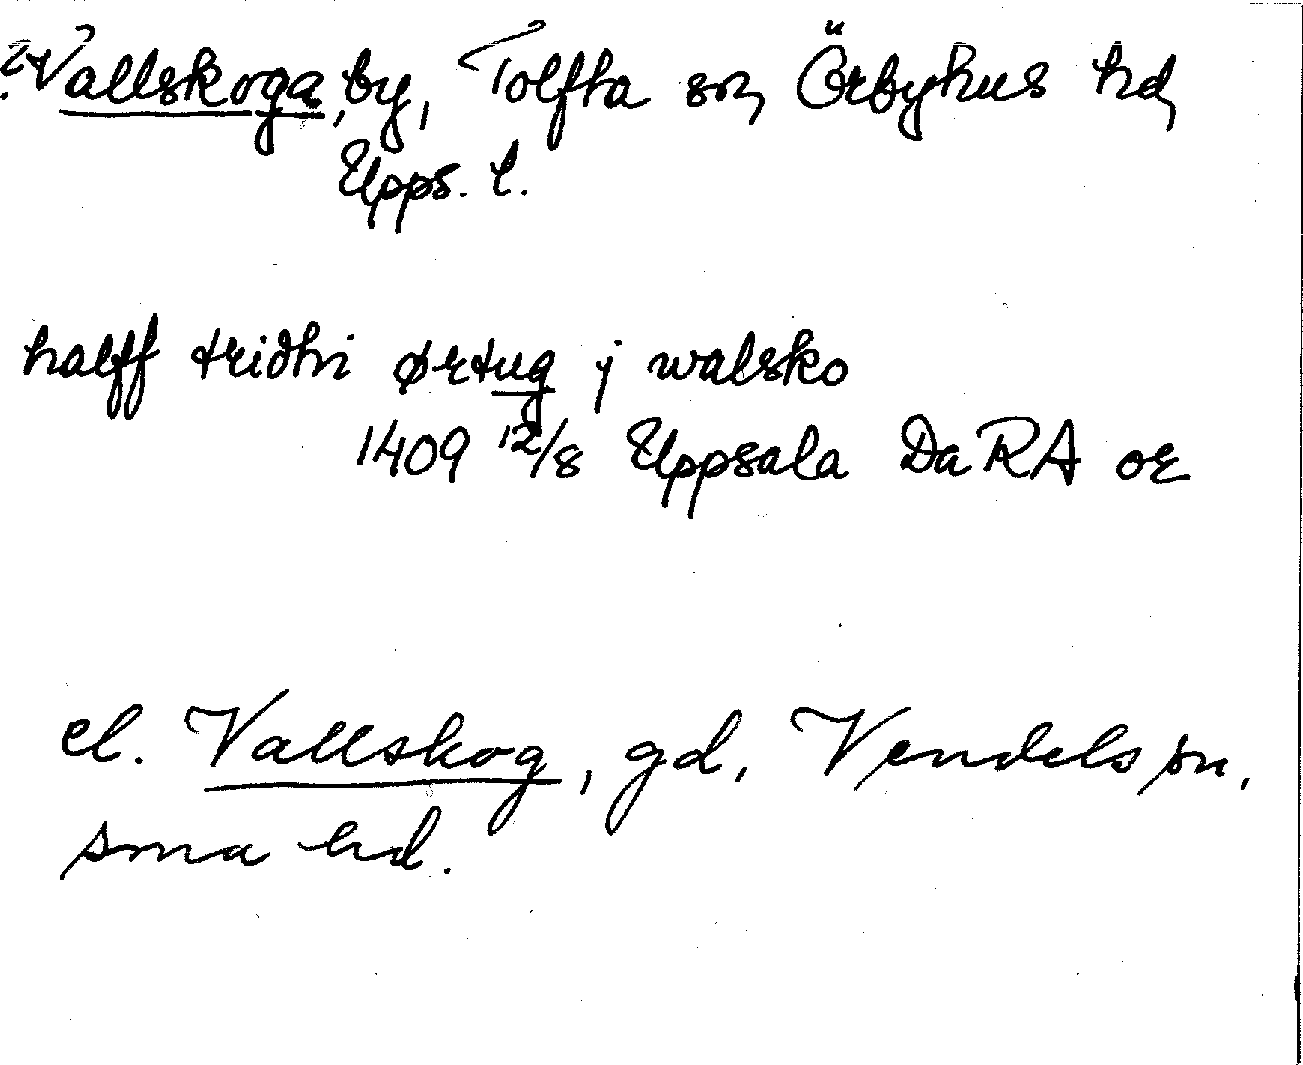 ? Vallskoga, by, Tolfta sn, Örbyhus hd,
Upps. l.
halff tridhi ørtug j walsko
1409 12/8 Uppsala DaRA or
el. Vallskog, gd, Vendels sn,
sma hd.